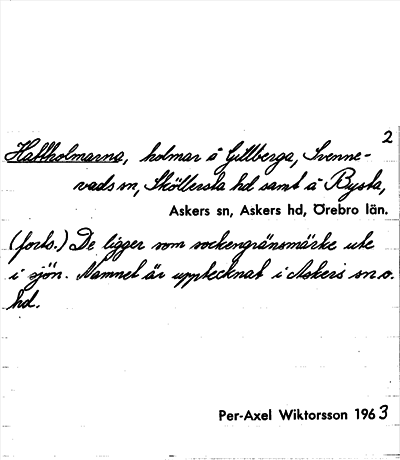 2
Hattholmarna, holmar å Gillberga, Svenne-
vads sn, Sköllersta hd samt å Rysta,
Askers sn, Askers hd, Örebro län.
(forts.) De ligger som sockengränsmärke ute
i sjön. Namnet är upptecknat i Askers sn o.
hd.
Per-Axel Wiktorsson 1963